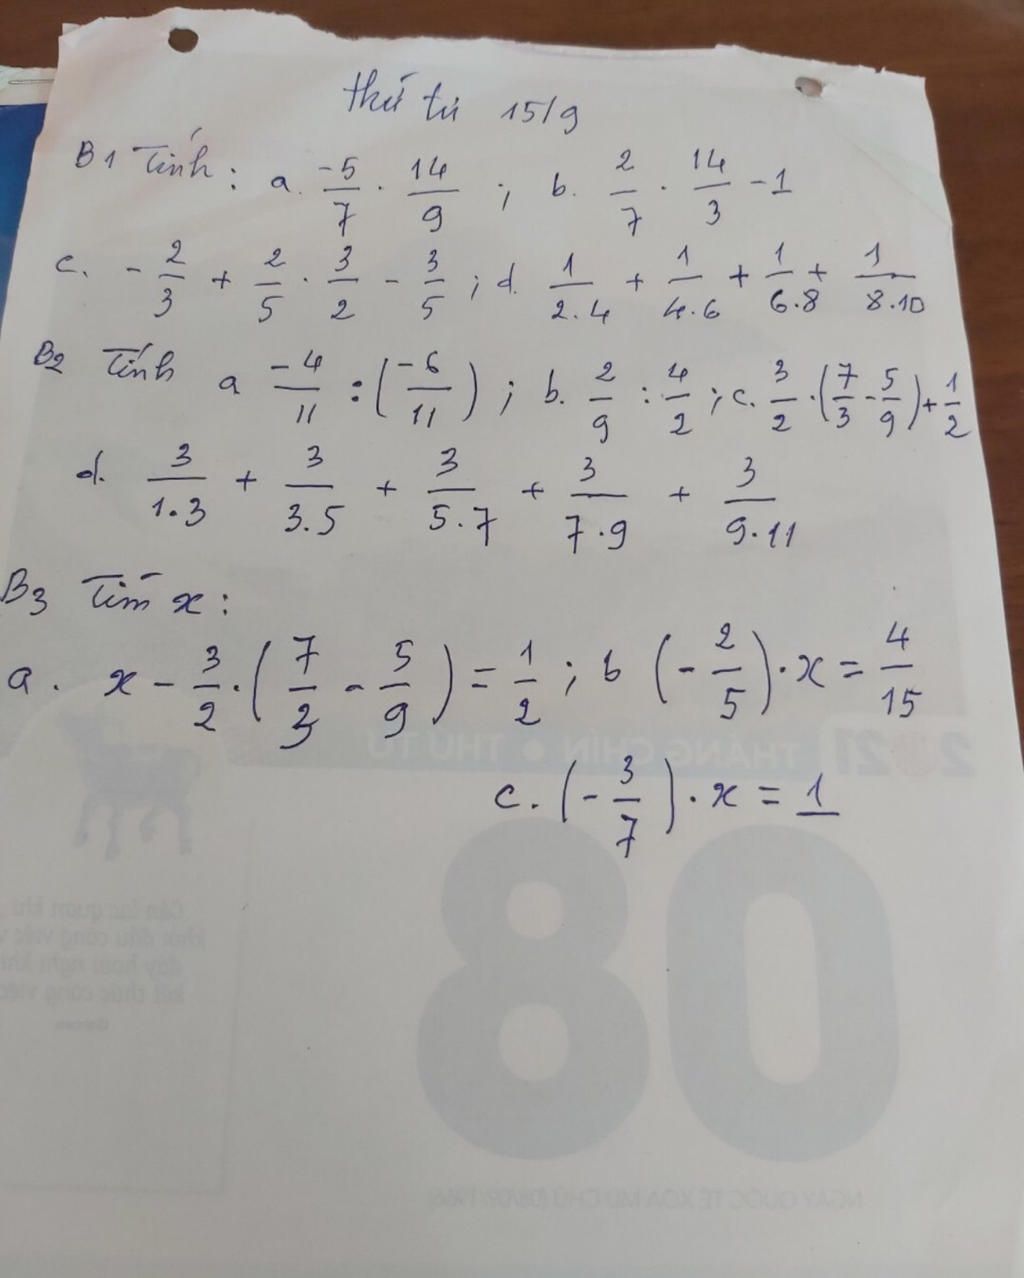 thứ tư 15/9
B1 Tính : a. -5/7 . 14/9 ; b. 2/7 . 14/3 - 1
c. - 2/3 + 2/5 . 3/2 - 3/5 ; d. 1/2.4 + 1/4.6 + 1/6.8 + 1/8.10
B2 Tính a -4/11 : (-6/11) ; b. 2/9 : 4/2 ; c. 3/2 . (7/3 - 5/9) + 1/2
d. 3/1.3 + 3/3.5 + 3/5.7 + 3/7.9 + 3/9.11
B3 Tìm x :
a. x - 3/2 . (7/3 - 5/9) = 1/2 ; b (- 2/5) . x = 4/15
c. (- 3/7) . x = 1
2021 THÁNG CHÍN • THỨ TƯ
08
Cần lạc quan khi
khởi đầu công việc
kết thúc công việc
NGÀY QUỐC TẾ XÓA MÙ CHỮ (08/09/1966)